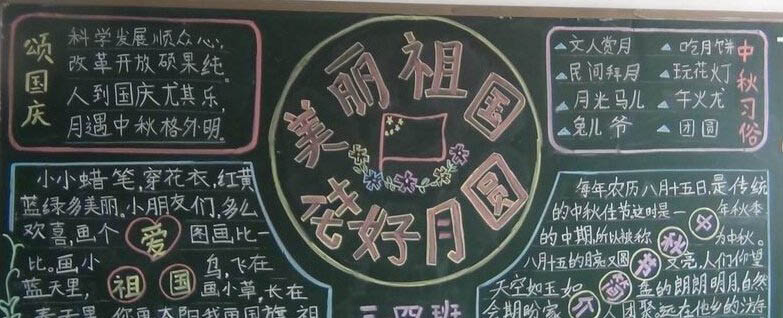 颂国庆
科学发展顺众心,
改革开放硕果纯。
人到国庆尤其乐,
月遇中秋格外明。
美丽祖国
花好月圆
三四班
中秋习俗
文人赏月
吃月饼
民间拜月
玩花灯
月光马儿
午火龙
兔儿爷
团圆
小小蜡笔,穿花衣,红黄
蓝绿多美丽。小朋友们,多么
欢喜,画个爱图画比一
比。画小鸟,飞在
蓝天里,祖国画小草,长在
春天里
每年农历八月十五日,是传统
的中秋佳节这时是一年秋季
的中期,所以被称为中秋。
八月十五的月亮又圆又亮,人们仰望
天空如玉如盘的朗朗明月,自然
会期盼家人团聚,远在他乡的游
中秋节